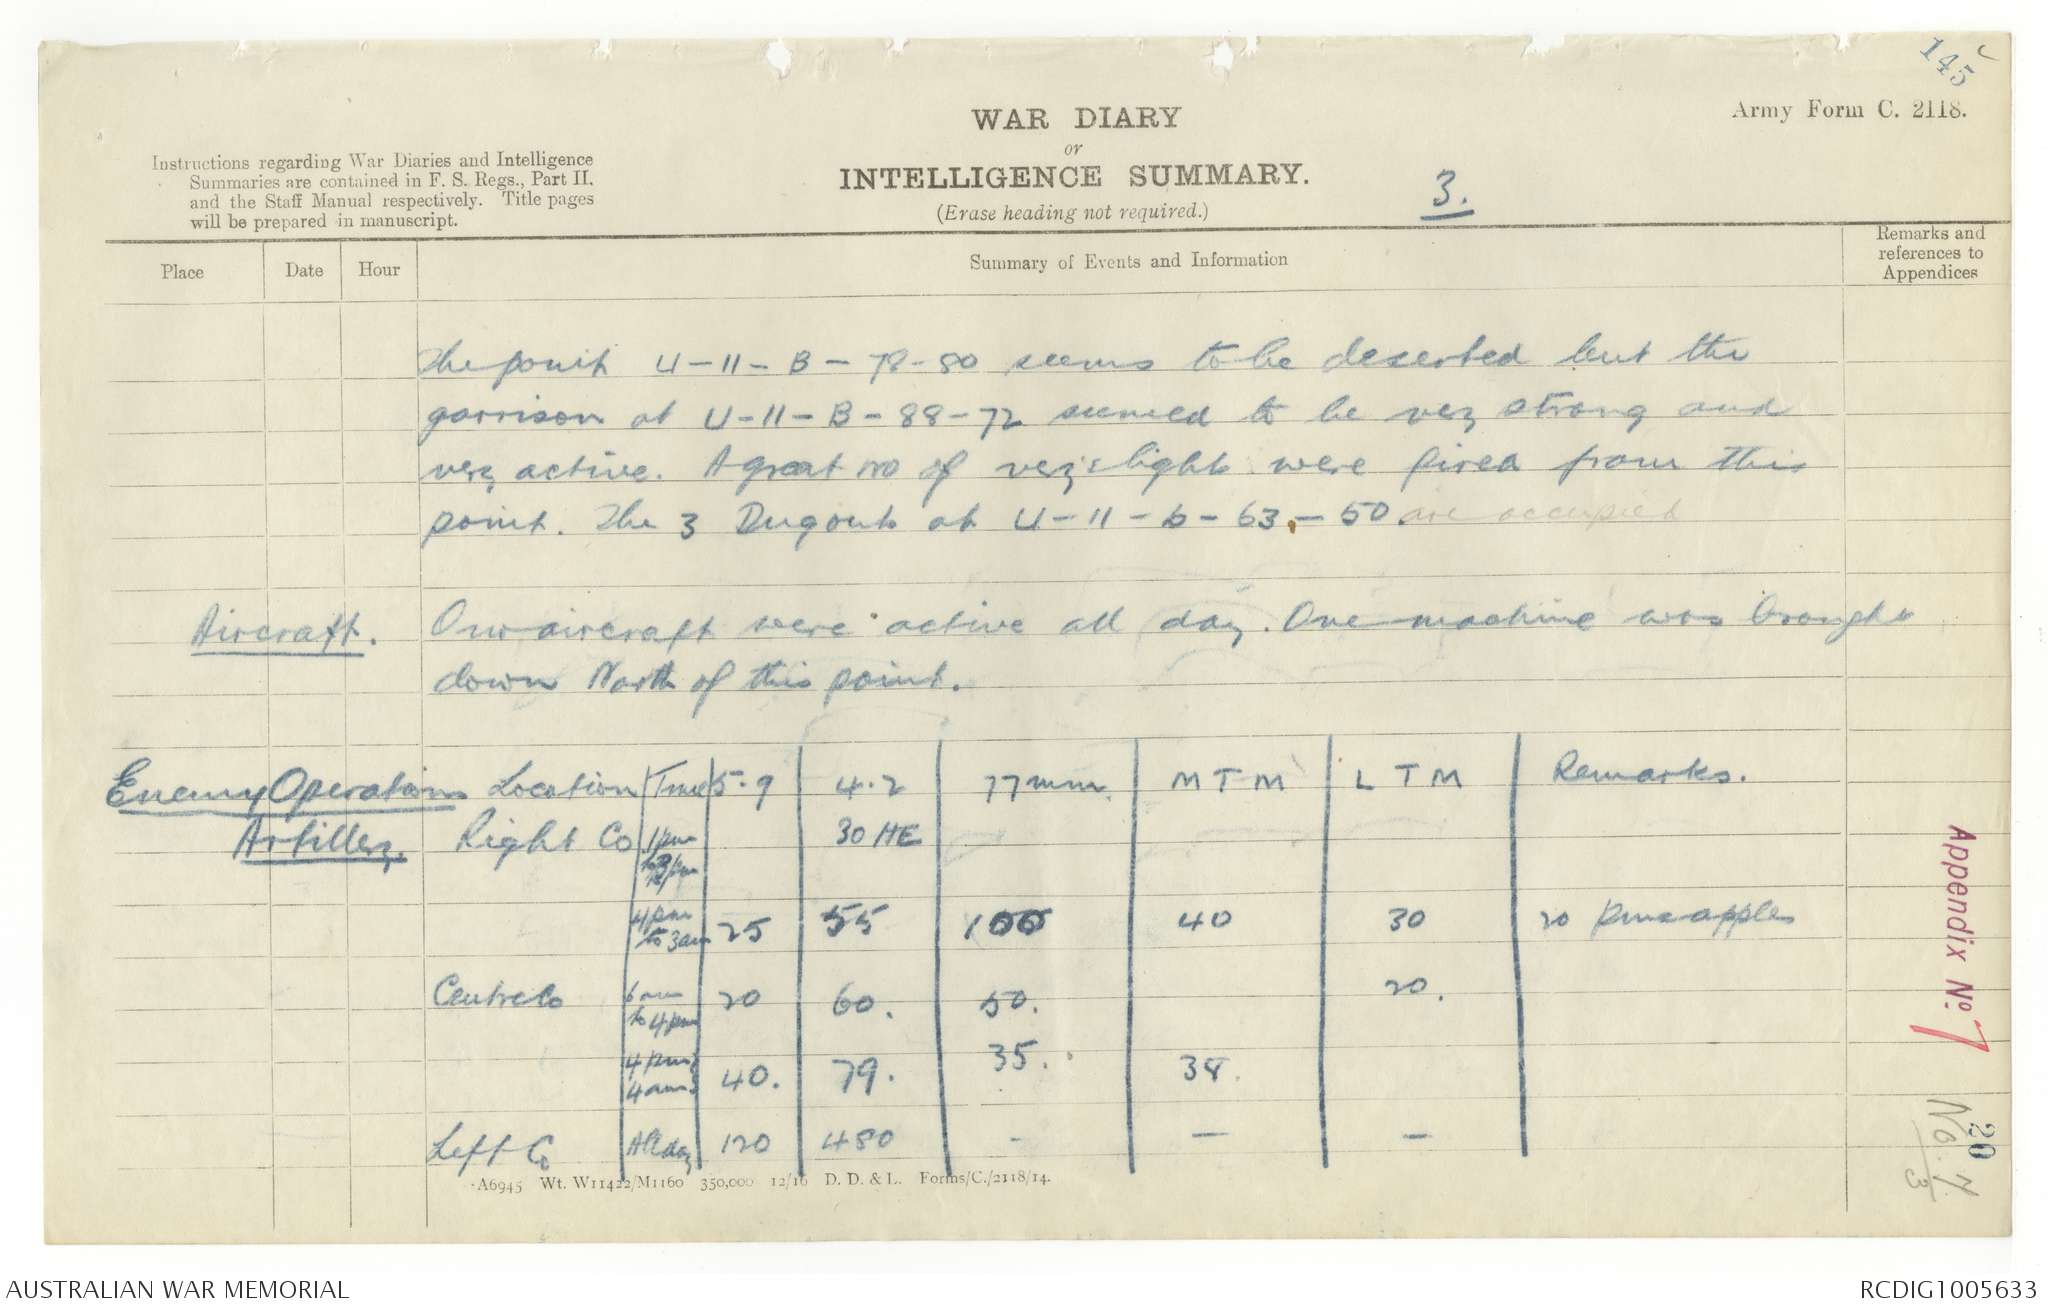 145
Army Form C. 2118.
WAR DIARY
or
INTELLIGENCE SUMMARY.
(Erase heading not required.)
3.
Instructions regarding War Diaries and Intelligence
Summaries are contained in F. S. Regs., Part II.
and the Staff Manual respectively. Title pages
will be prepared in manuscript.
Place Date Hour Summary of Events and Information Remarks and references to Appendices
The point U-11-B-78-80 seems to be deserted but the
garrison at U-11-B-88-72 seemed to be very strong and
very active. A great no of very lights were fired from this
point. The 3 Dugouts at U-11-b-63-50 are occupied
Aircraft. Our aircraft were active all day. One machine was brought
down North of this point.
Enemy Operations Location Time 5.9 4.2 77mm. MTM LTM Remarks.
Artillery. Right Co 1pm to 30 HE
4pm to 3am 25 55 100 40 30 20 pineapples
Centre Co 6am to 4pm 20 60. 50. 20.
4pm 4am 40. 79. 35. 38.
Left Co All day 120 480 - - -
A6945 Wt. W11422/M1160 350,000 12/16 D. D. & L. Forms/C./2118/14.
Appendix No. 7
20
No. 7
3
AUSTRALIAN WAR MEMORIAL
RCDIG1005633